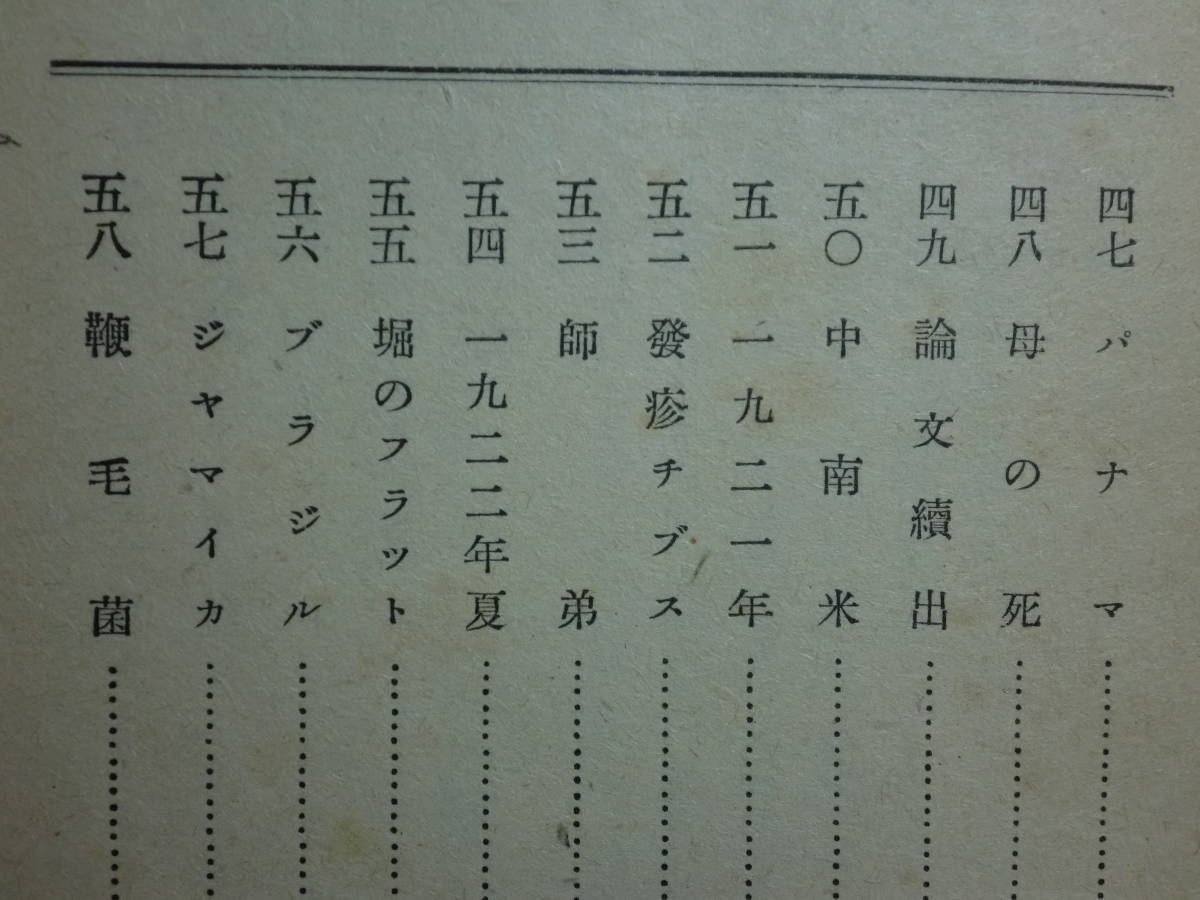 四七 パナマ
四八 母の死
四九 論文續出
五〇 中南米
五一 一九二一年
五二 發疹チブス
五三 師弟
五四 一九二二年夏
五五 堀のフラット
五六 ブラジル
五七 ジヤマイカ
五八 鞭毛菌